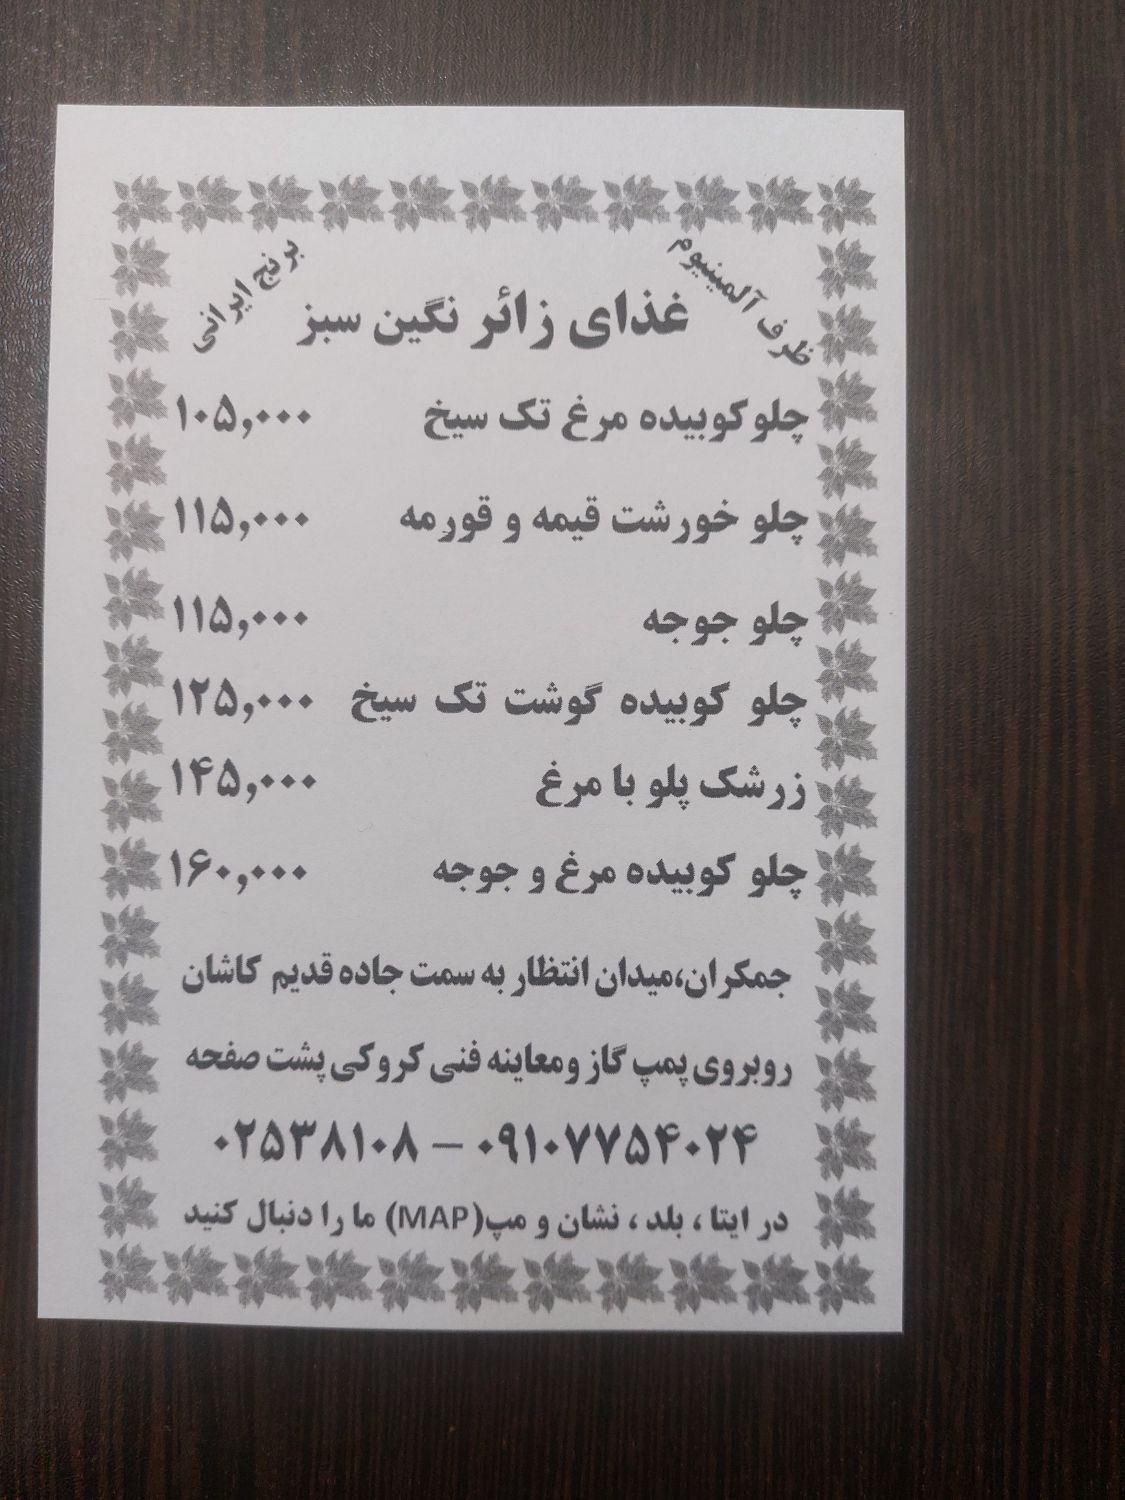 ظرف آلمینیوم
برنج ایرانی
غذای زائر نگین سبز
چلوکوبیده مرغ تک سیخ ۱۰۵,۰۰۰
چلو خورشت قیمه و قورمه ۱۱۵,۰۰۰
چلو جوجه ۱۱۵,۰۰۰
چلو کوبیده گوشت تک سیخ ۱۲۵,۰۰۰
زرشک پلو با مرغ ۱۴۵,۰۰۰
چلو کوبیده مرغ و جوجه ۱۶۰,۰۰۰
جمکران،میدان انتظار به سمت جاده قدیم کاشان
روبروی پمپ گاز ومعاینه فنی کروکی پشت صفحه
۰۲۵۳۸۱۰۸ – ۰۹۱۰۷۷۵۴۰۲۴
در ایتا ، بلد ، نشان و مپ(MAP) ما را دنبال کنید